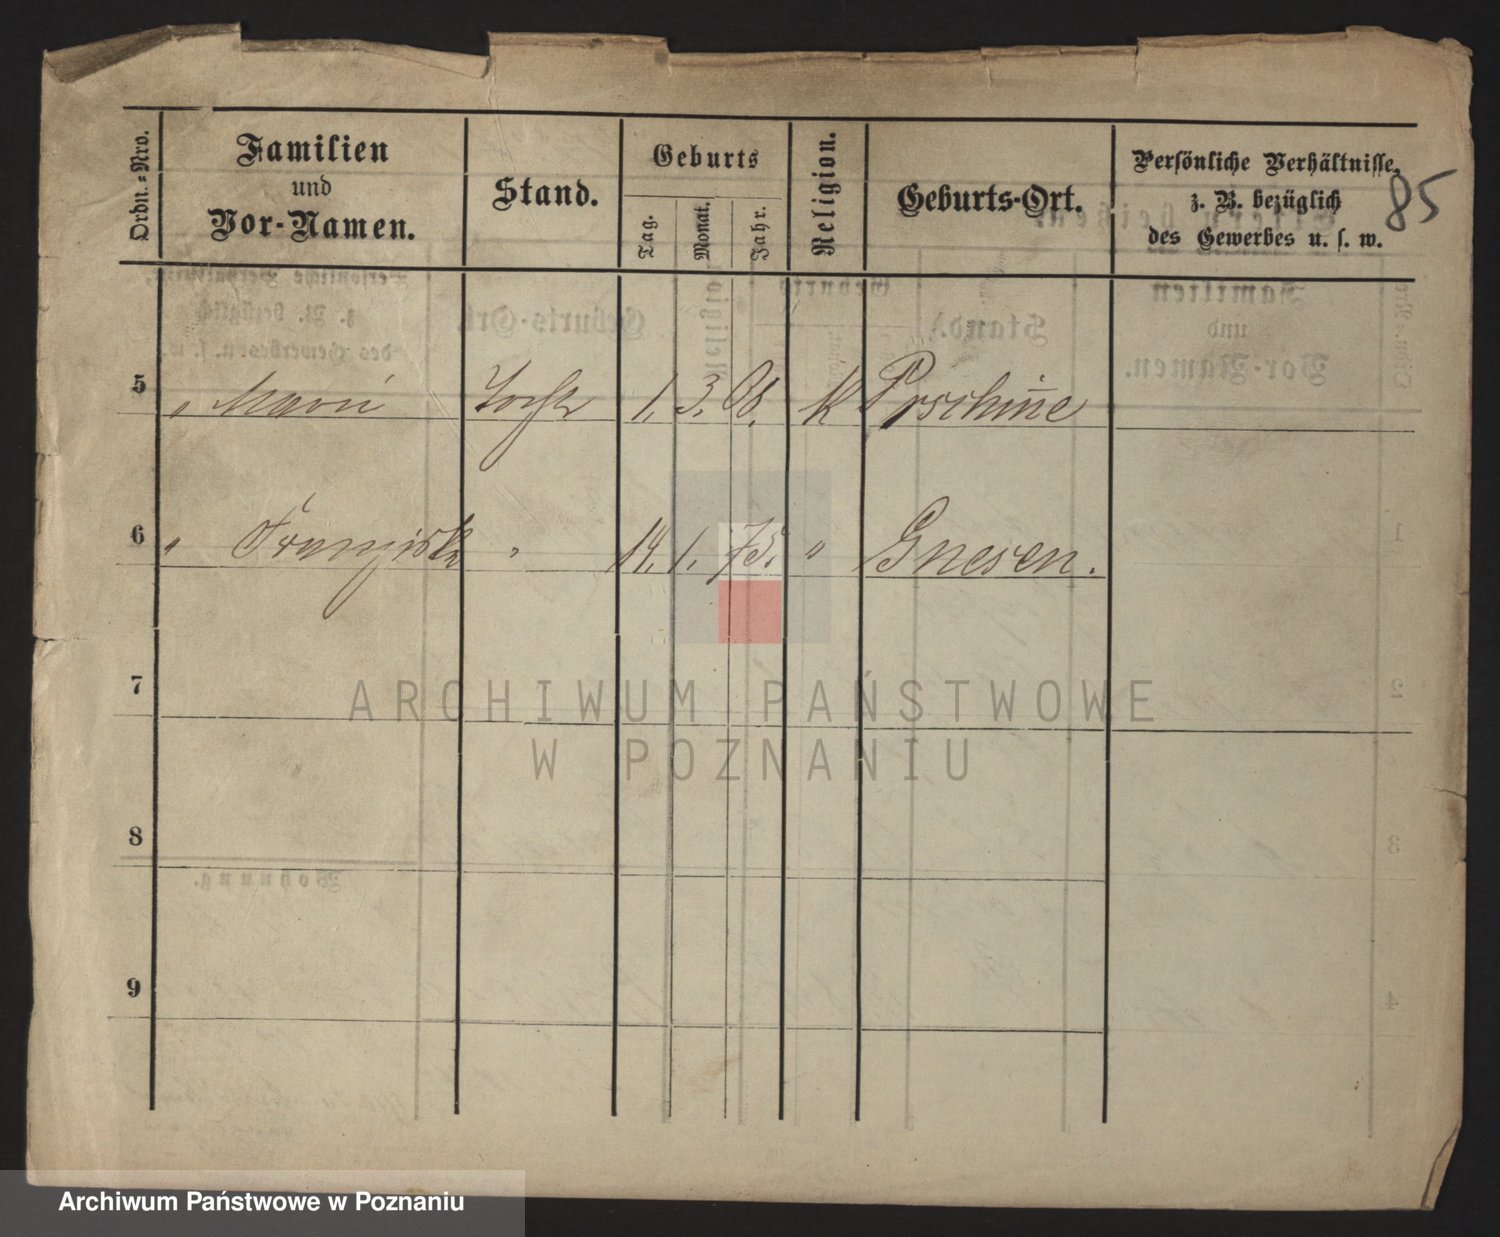 85
Ordn.-Nro.
Familien
und
Vor-Namen.
Stand.
Geburts
Tag.
Monat.
Jahr.
Religion.
Geburts-Ort.
Persönliche Verhältnisse,
z. B. bezüglich
des Gewerbes u. s. w.
5 " Marie 1. 3. K
6 " Franziska " 14. 1. 75. " Gnesen.
7
8
9
ARCHIWUM PAŃSTWOWE
W POZNANIU
Archiwum Państwowe w Poznaniu